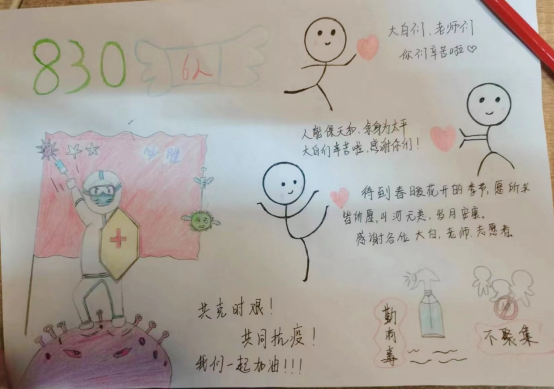 830
6人
大白们、老师们
你们辛苦啦♡
大白们辛苦啦，感谢你们！
待到春暖花开的季节，愿所求
皆所愿，山河无恙，岁月安康。
感谢各位大白，老师，志愿者。
共克时艰！
共同抗疫！
我们一起加油!!!
勤消毒
不聚集